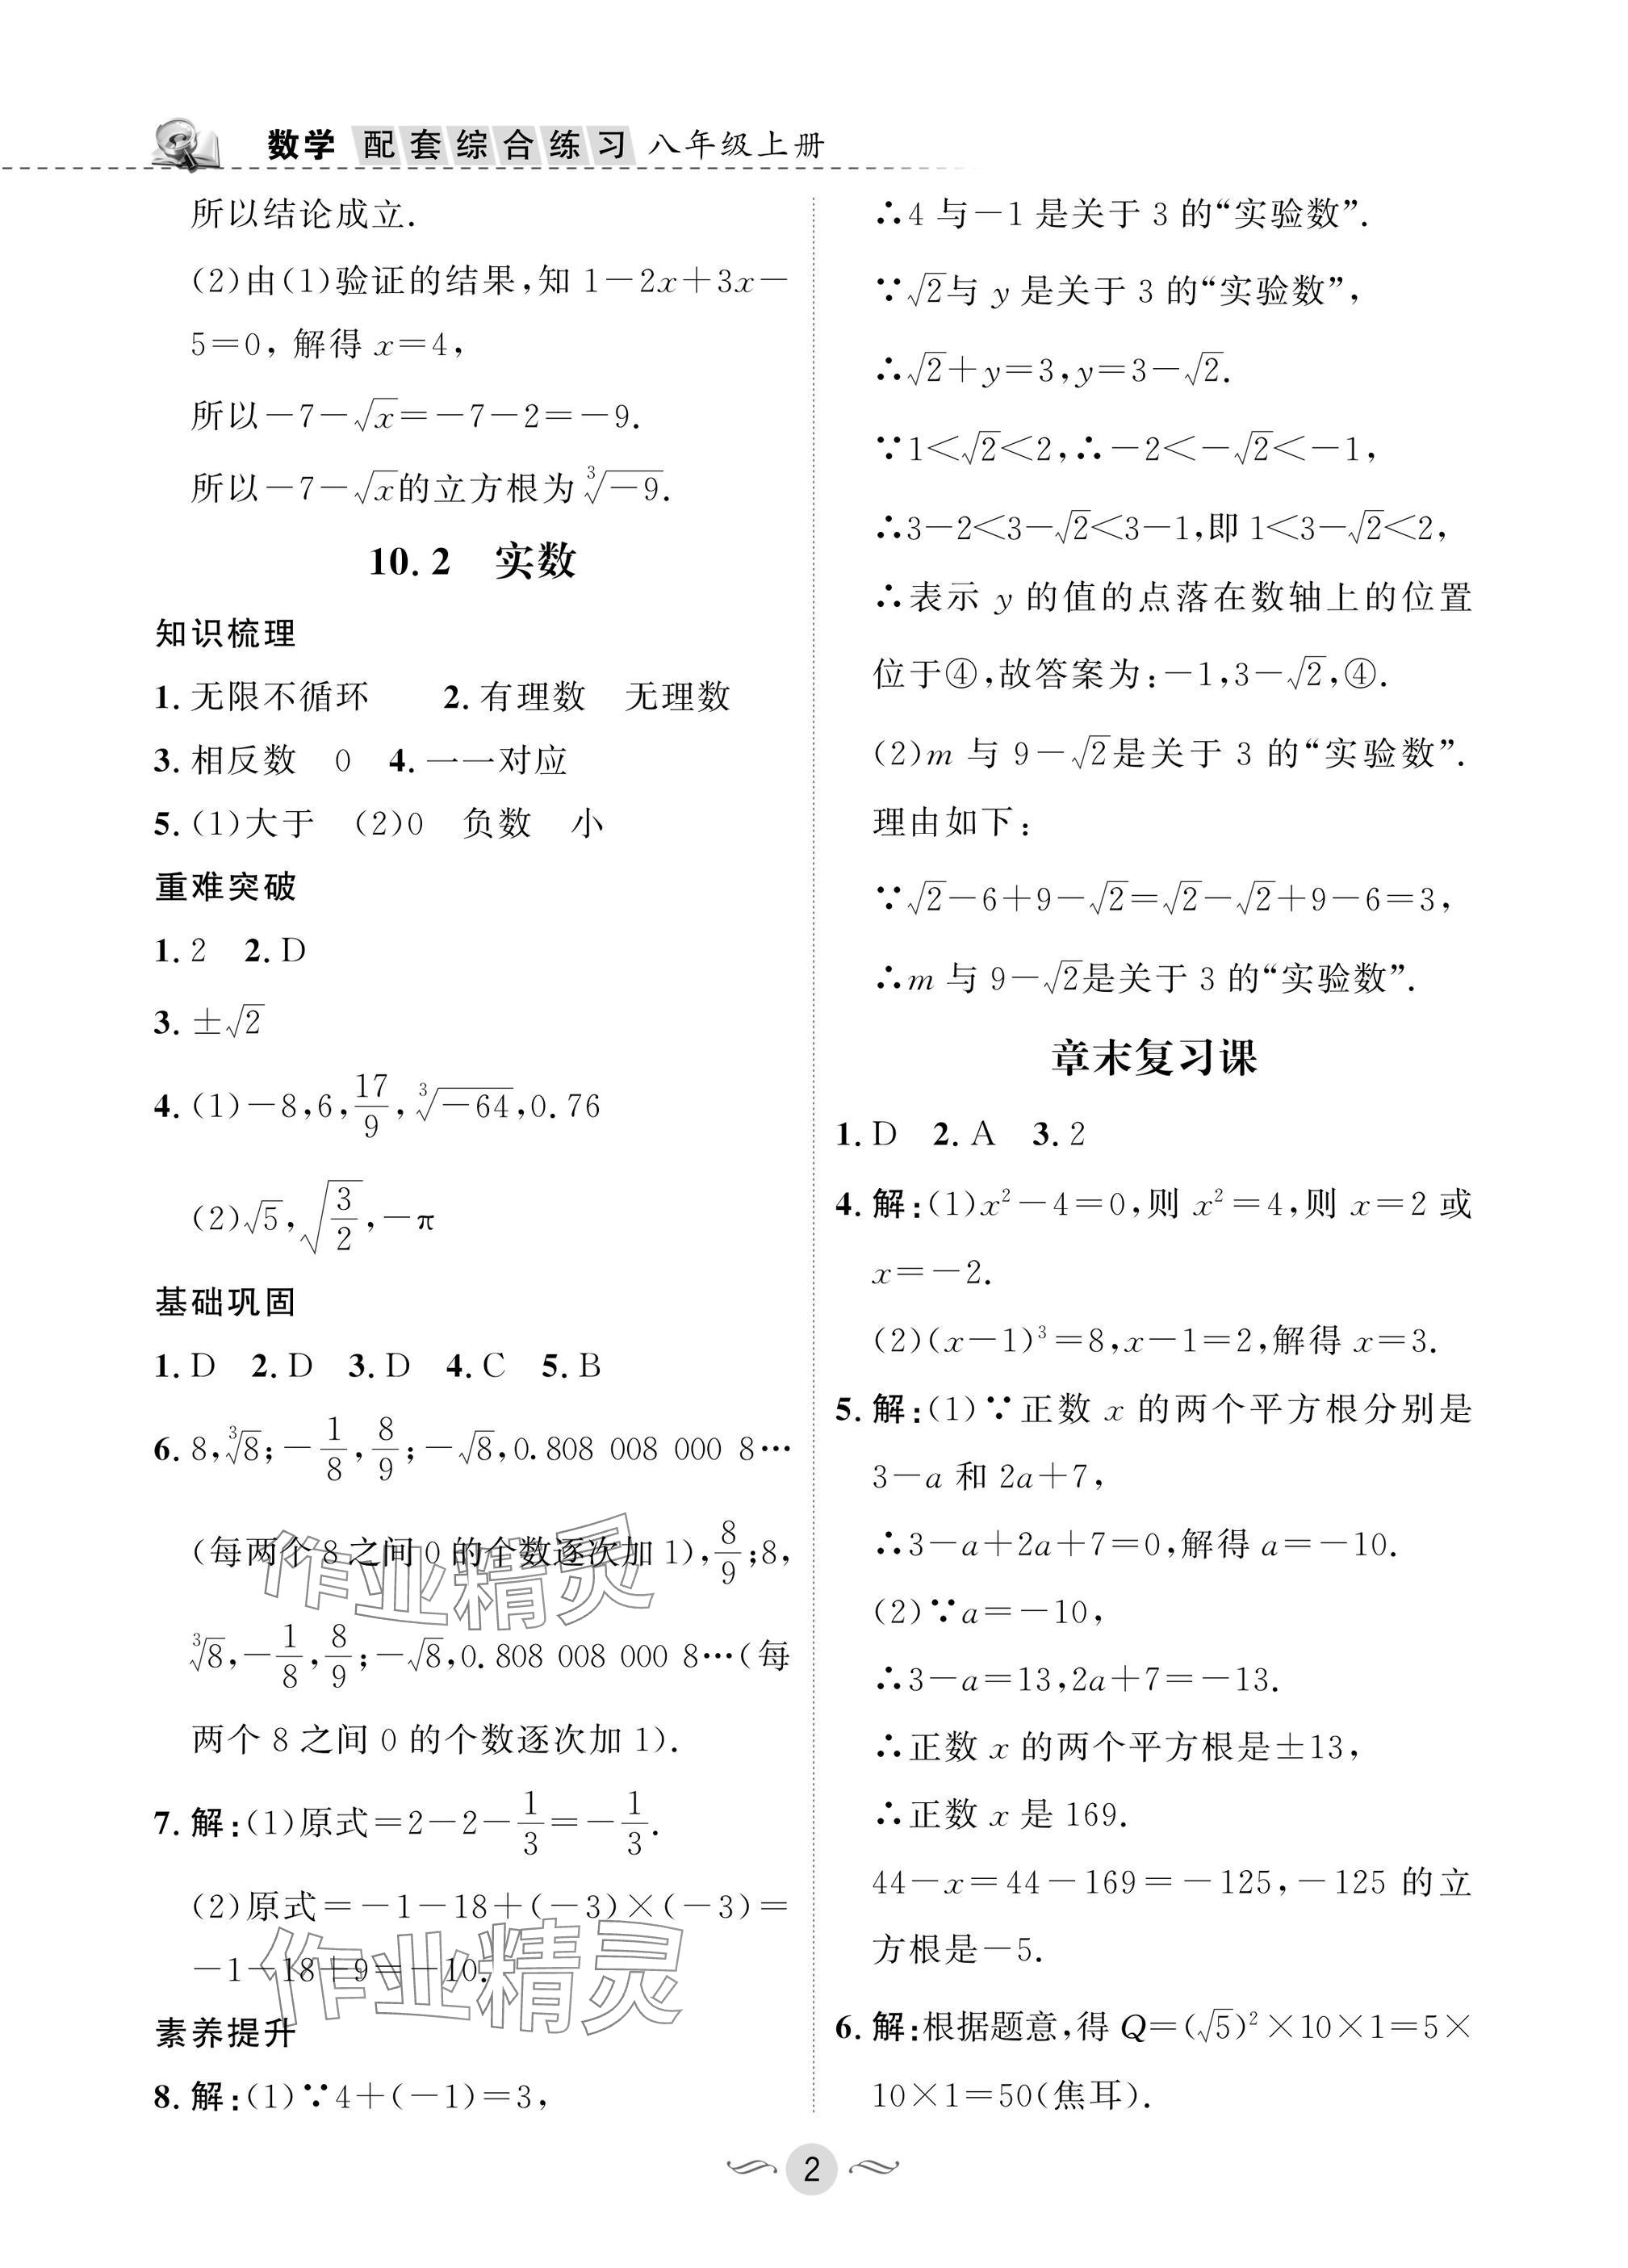 数学 配套综合练习 八年级上册
所以结论成立.
(2)由(1)验证的结果,知 1－2x＋3x－
5＝0, 解得 x＝4,
所以－7－√x＝－7－2＝－9.
所以－7－√x的立方根为∛－9.
10.2 实数
知识梳理
1. 无限不循环 2. 有理数 无理数
3. 相反数 0 4. 一一对应
5. (1)大于 (2)0 负数 小
重难突破
1. 2 2. D
3. ±√2
4. (1)－8,6,17/9,∛－64,0.76
(2)√5,√(3/2),－π
基础巩固
1. D 2. D 3. D 4. C 5. B
6. 8,∛8;－1/8,8/9;－√8,0.808 008 000 8…
(每两个 8 之间 0 的个数逐次加 1),8/9;8,
∛8,－1/8,8/9;－√8,0.808 008 000 8…(每
两个 8 之间 0 的个数逐次加 1).
7. 解:(1)原式＝2－2－1/3＝－1/3.
(2)原式＝－1－18＋(－3)×(－3)＝
－1－18＋9＝－10.
素养提升
8. 解:(1)∵4＋(－1)＝3,
∴4 与－1 是关于 3 的“实验数”.
∵√2与 y 是关于 3 的“实验数”,
∴√2＋y＝3,y＝3－√2.
∵1＜√2＜2,∴－2＜－√2＜－1,
∴3－2＜3－√2＜3－1,即 1＜3－√2＜2,
∴表示 y 的值的点落在数轴上的位置
位于④,故答案为:－1,3－√2,④.
(2)m 与 9－√2是关于 3 的“实验数”.
理由如下:
∵√2－6＋9－√2＝√2－√2＋9－6＝3,
∴m 与 9－√2是关于 3 的“实验数”.
章末复习课
1. D 2. A 3. 2
4. 解:(1)x²－4＝0,则 x²＝4,则 x＝2 或
x＝－2.
(2)(x－1)³＝8,x－1＝2,解得 x＝3.
5. 解:(1)∵正数 x 的两个平方根分别是
3－a 和 2a＋7,
∴3－a＋2a＋7＝0,解得 a＝－10.
(2)∵a＝－10,
∴3－a＝13,2a＋7＝－13.
∴正数 x 的两个平方根是±13,
∴正数 x 是 169.
44－x＝44－169＝－125,－125 的立
方根是－5.
6. 解:根据题意,得 Q＝(√5)²×10×1＝5×
10×1＝50(焦耳).
作业精灵
作业精灵
2